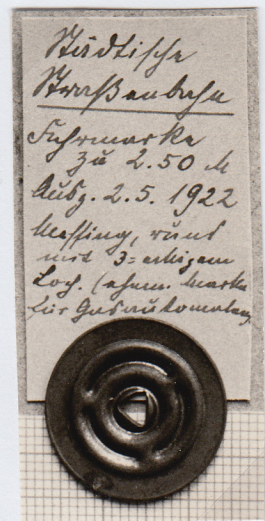 Städtische
Straßenbahn
Fahrmarke
zu 2.50 M
Ausg. 2.5. 1922
Messing, rund
mit 3=eckigem
Loch. (ehem. Marke
für Gasautomaten)